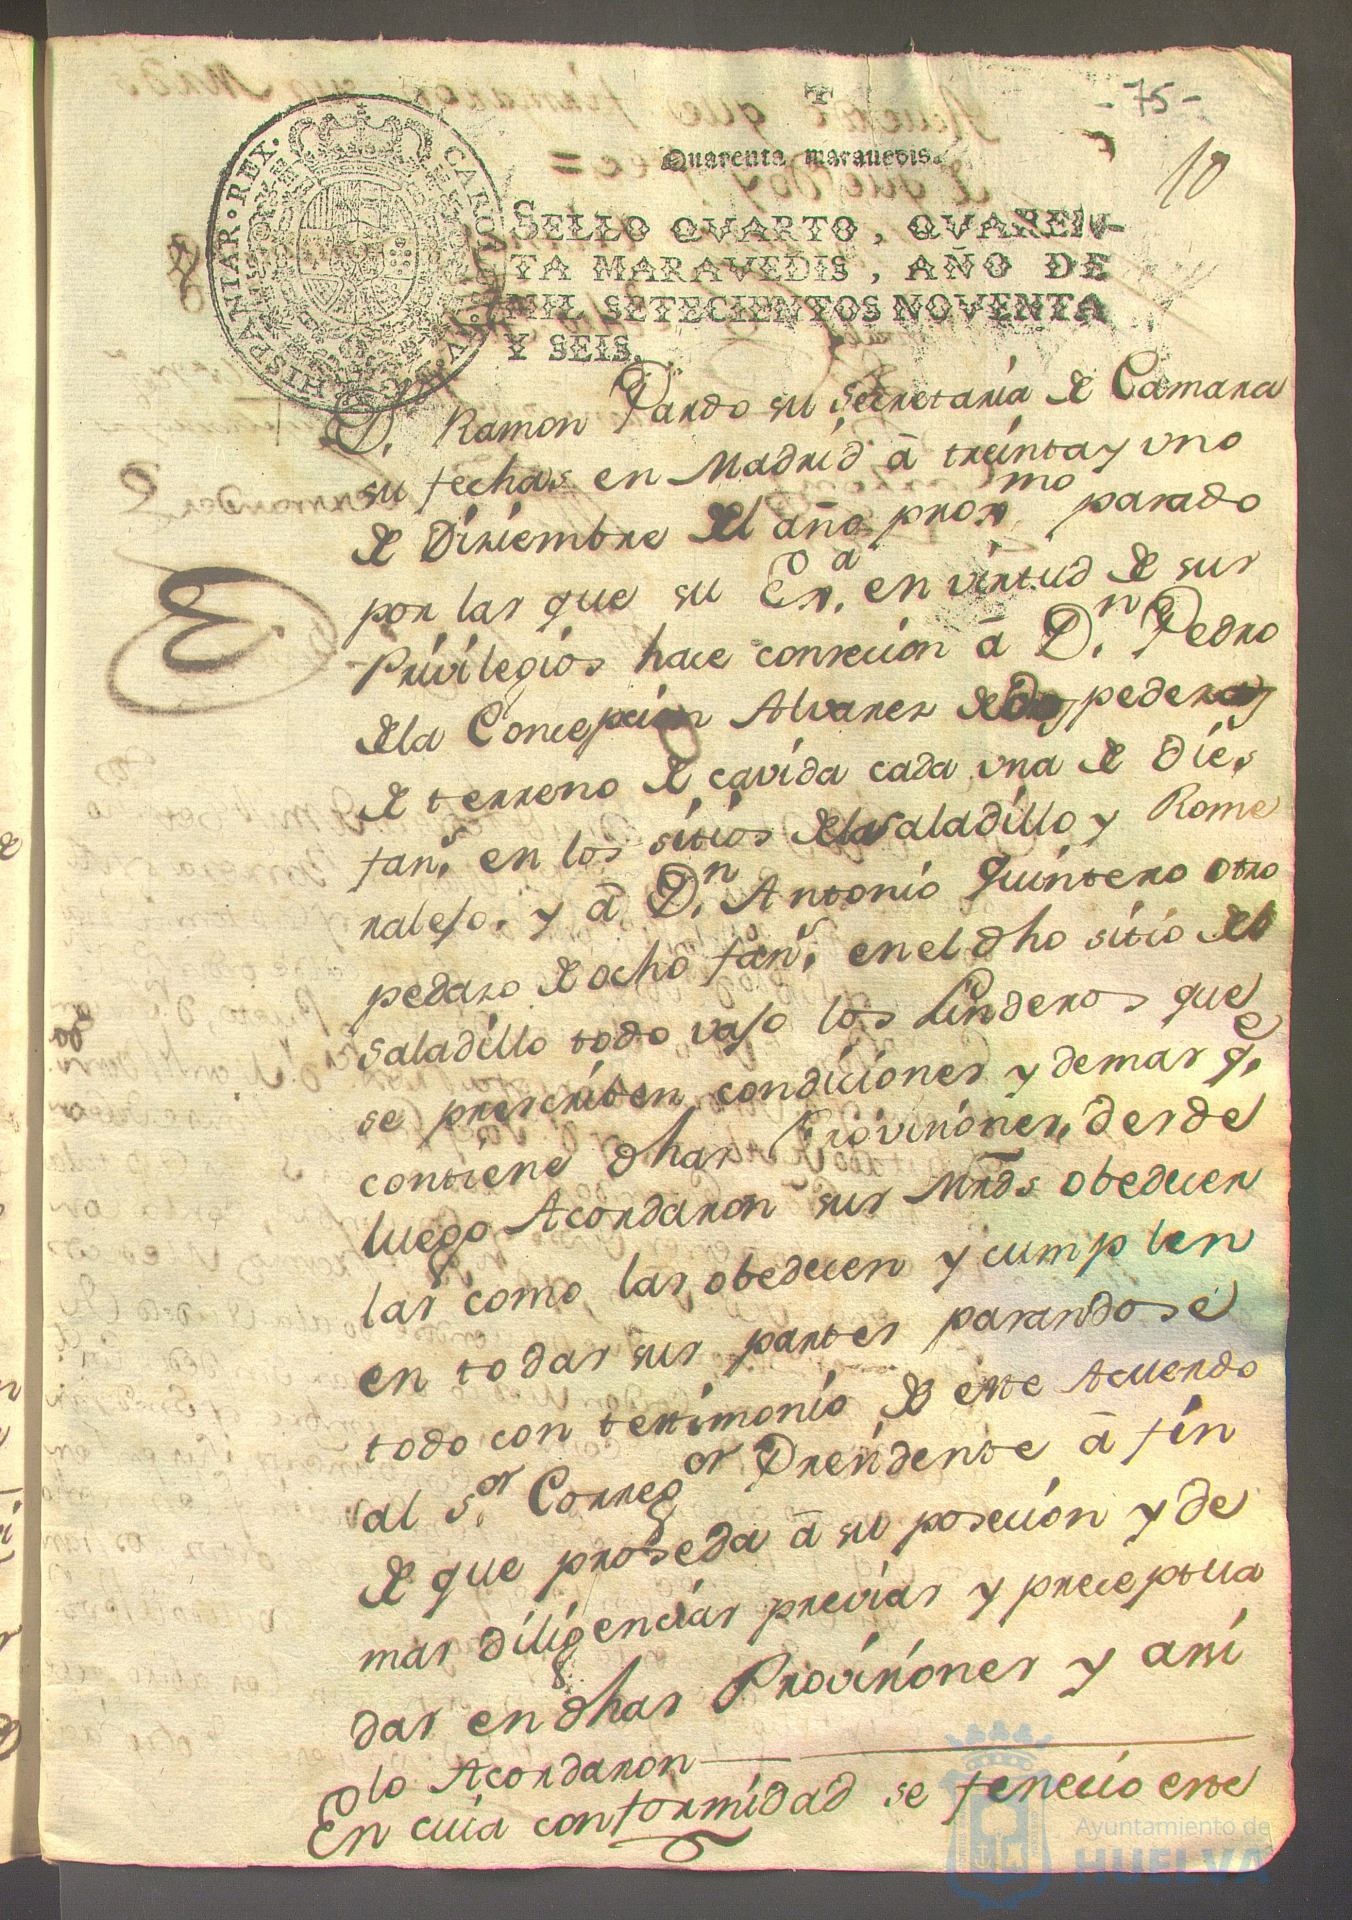 -75-
10
Quarenta maravedis.
SELLO QVARTO, QVAREN-
TA MARAVEDIS, AÑO DE
MIL SETECIENTOS NOVENTA
Y SEIS.
HISPANIAR·REX·CAROLVS·IV·D·G·
D. Ramon Pardo su Secretaria de Camara
su fechas en Madrid â treinta y uno
de Diziembre del año proxmo pasado
por las que su Exa. en virtud de sus
Privilegios hace consecion â Dn. Pedro
de la Concepcion Alvarez de Dos pedasos
de terreno de cavida cada una de Dies
fans. en los sitios del Saladillo y Rome
ralejo, y â Dn. Antonio Quintero otro
pedazo de ocho fans. en el dho sitio del
Saladillo todo vajo los Linderos que
se prescriben condiciones y demas qe.
contiene dhas Provisiones, desde
luego Acordaron sus Mrds obedecer
las como las obedecen y cumplen
en todas sus partes pasandose
todo con testimonio de este Acuerdo
al sor. Corregor Presidente â fin
de que proseda â su posecion y de
mas diligencias previas y preceptua
das en dhas Provisiones y assi
lo Acordaron
En cuia conformidad se fenecio este
Ayuntamiento de
HUELVA